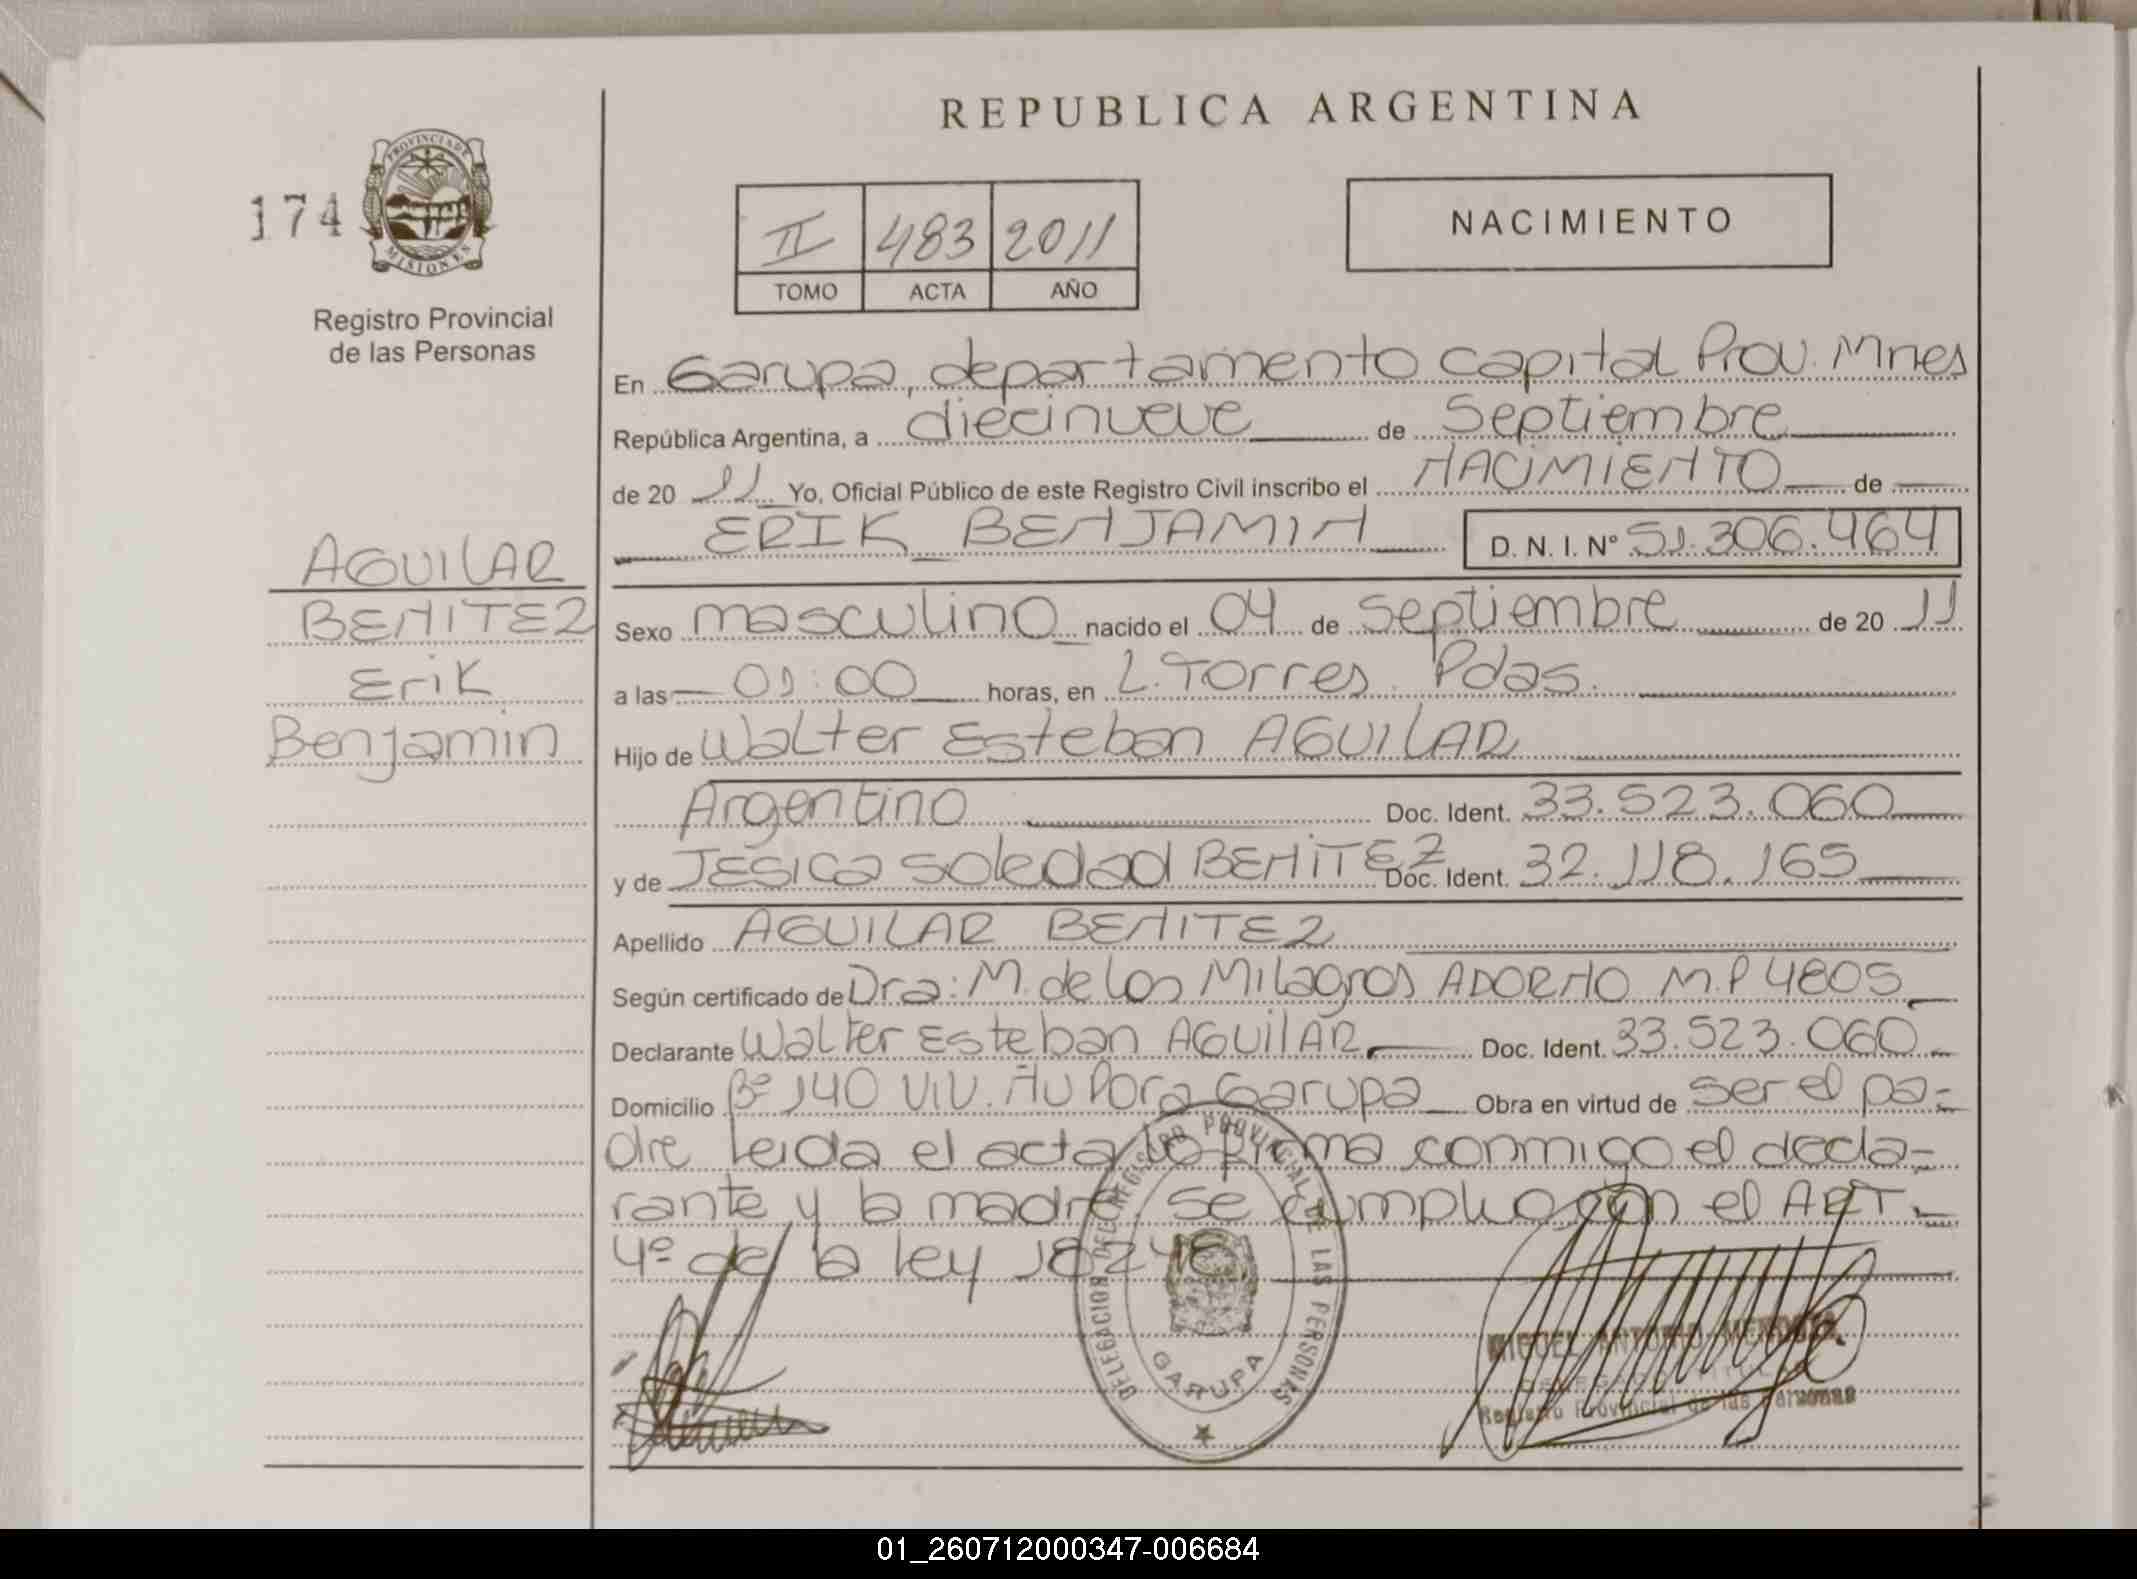 REPUBLICA ARGENTINA
174
PROVINCIA DE
MISIONES
Registro Provincial
de las Personas
II 483 2011
TOMO ACTA AÑO
NACIMIENTO
En Garupa, departamento capital Prov. Mnes
República Argentina, a diecinueve de Septiembre
de 20 11 Yo, Oficial Público de este Registro Civil inscribo el NACIMIENTO de
ERIK BENJAMIN D. N. I. Nº 51.306.464
AGUILAR
BENITEZ
Erik
Benjamin
Sexo masculino nacido el 04 de Septiembre de 20 11
a las 01:00 horas, en L. Torres Pdas.
Hijo de Walter Esteban AGUILAR
Argentino Doc. Ident. 33.523.060
y de JESICA Soledad BENITEZ Doc. Ident. 32.118.165
Apellido AGUILAR BENITEZ
Según certificado de Dra: M. de los Milagros ADORNO M.P 4805
Declarante Walter Esteban AGUILAR Doc. Ident. 33.523.060
Domicilio Bº 140 VIV. Ñu Pora Garupa Obra en virtud de ser el pa-
dre leida el acta la firma conmigo el decla-
rante y la madre. Se cumplio con el ART.
4º de la ley 18248
DELEGACION DEL REGISTRO PROVINCIAL DE LAS PERSONAS
GARUPA
MIGUEL ANTONIO
Registro Provincial de las Personas
01_260712000347-006684